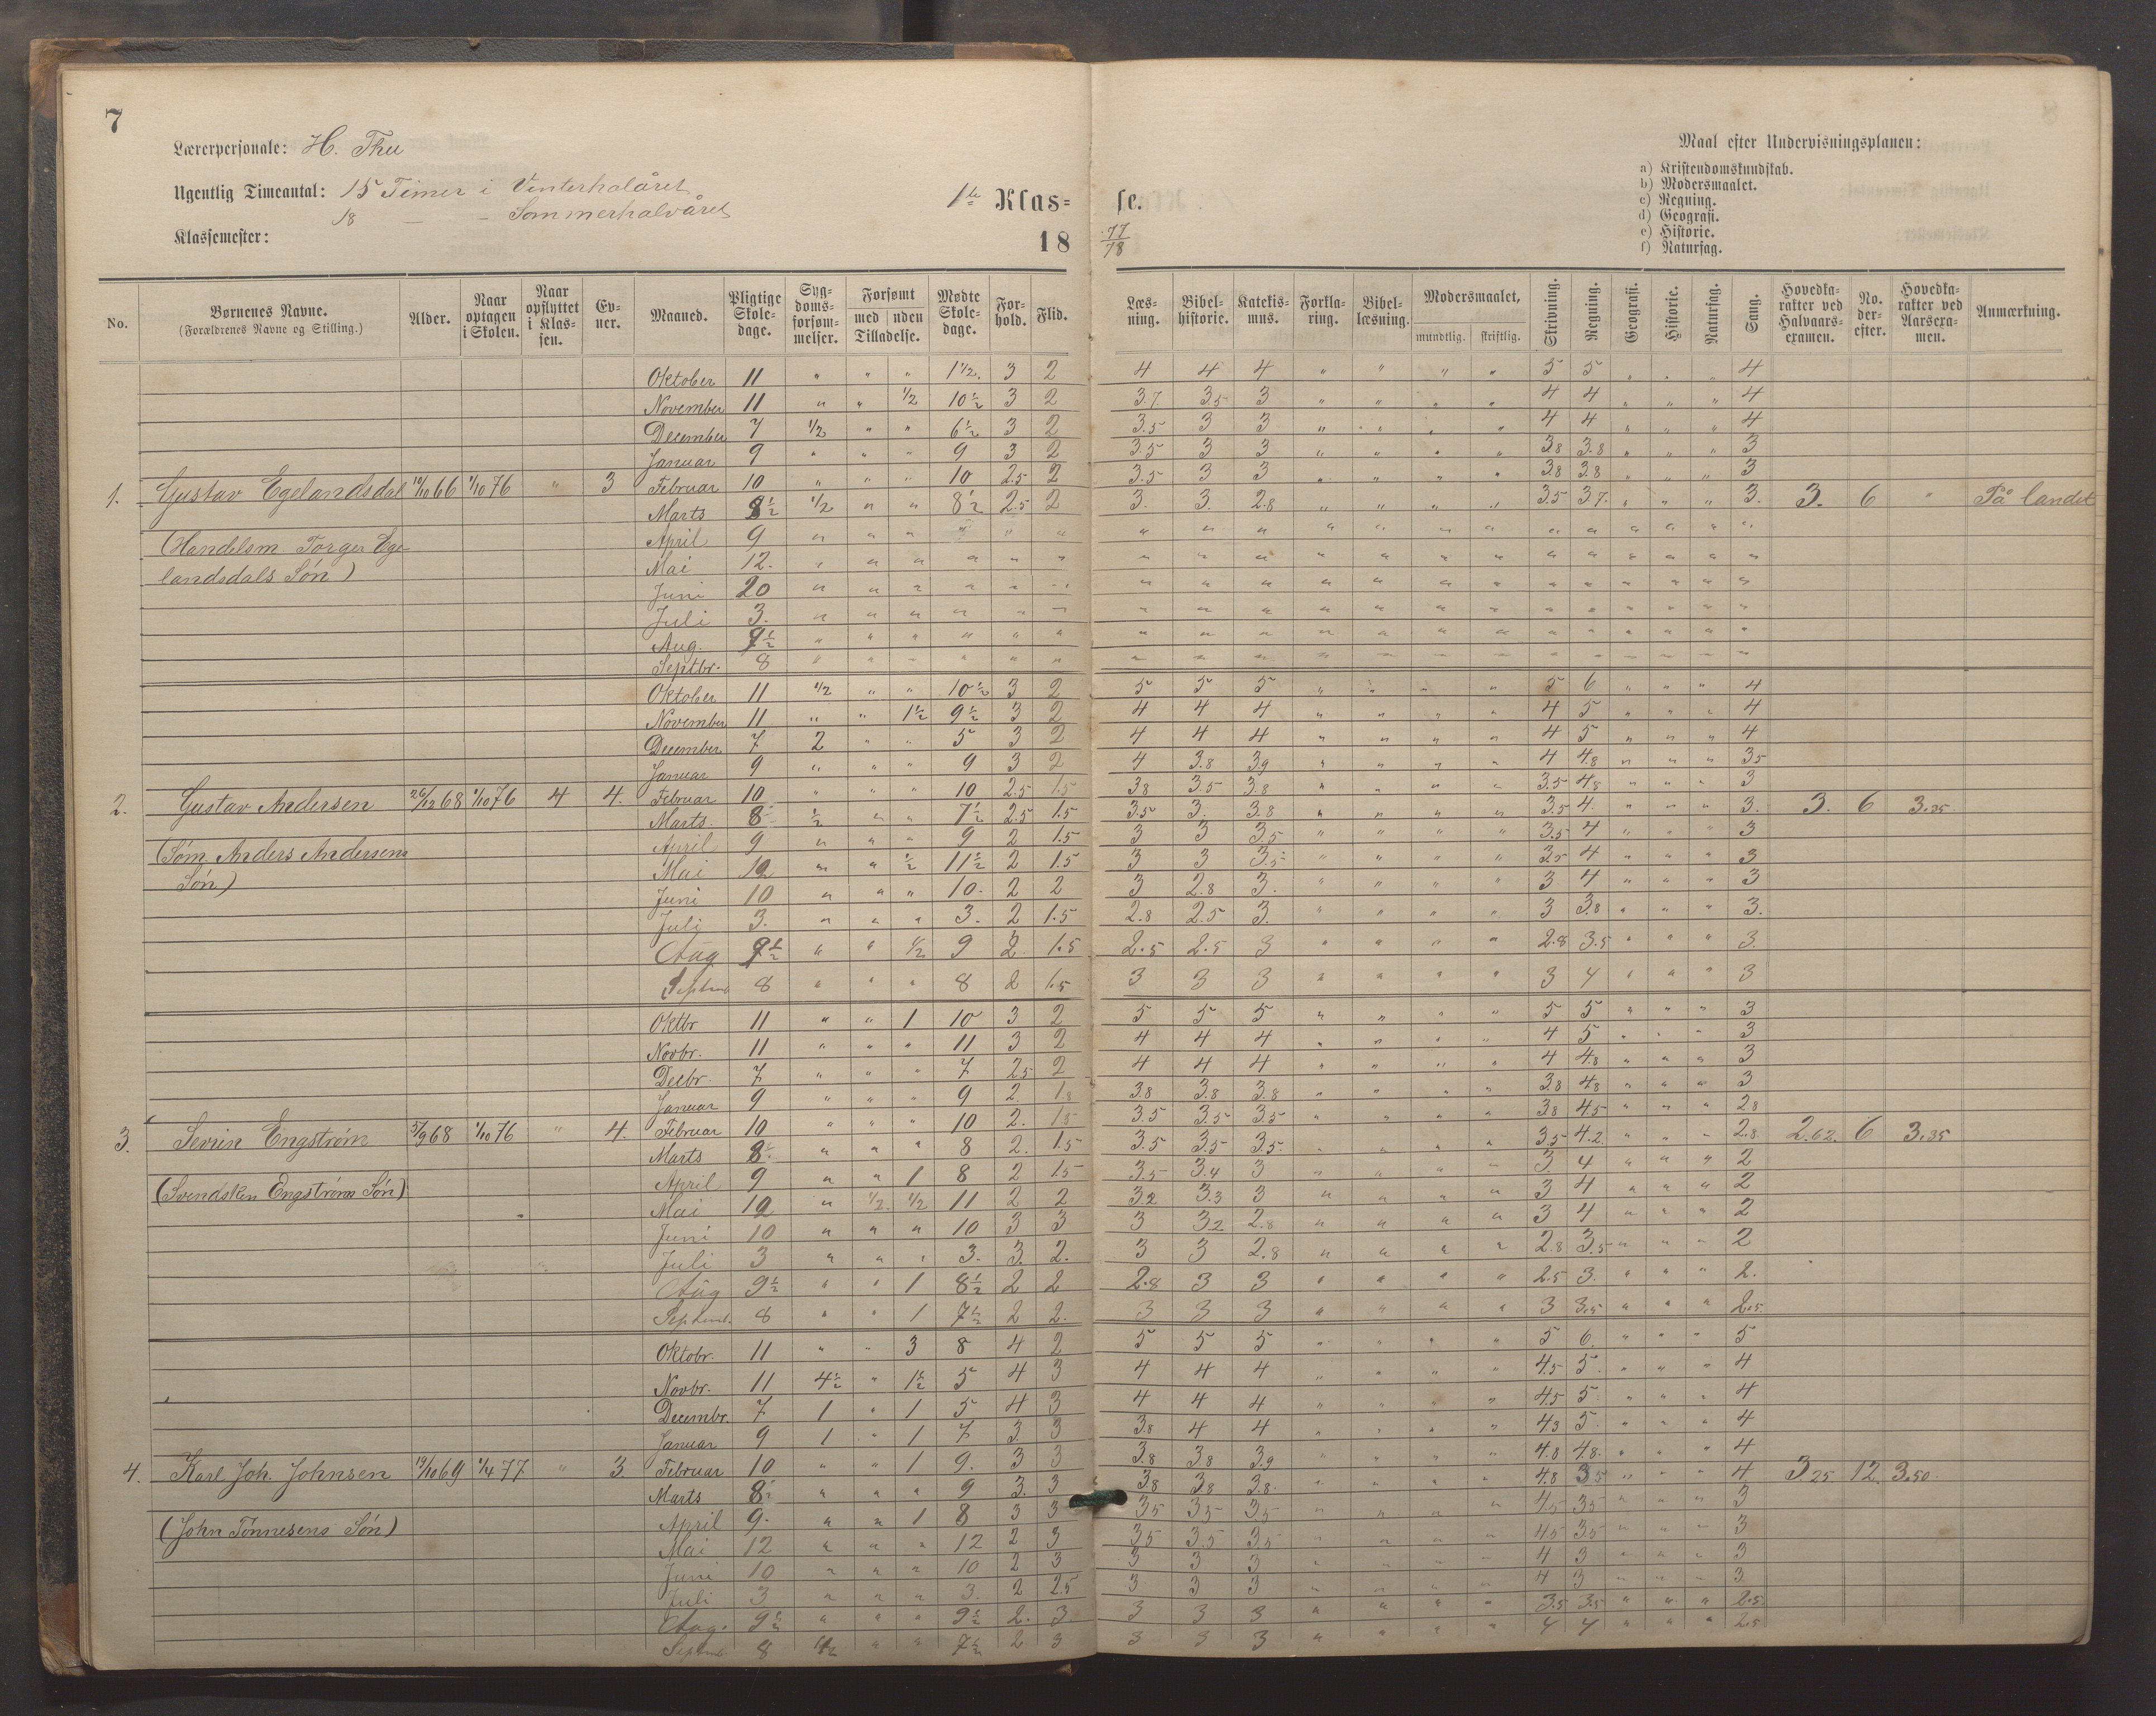 7
Lærerpersonale: H. Thu
Ugentlig Timeantal: 15 Timer i Vinterhalåret
18 — - Sommerhalvåret
Klassemester:
1ste Klas= se.
18 77/78
Maal efter Undervisningsplanen:
a) Kristendomskundskab.
b) Modersmaalet.
c) Regning.
d) Geografi.
e) Historie.
f) Naturfag.
No. | Børnenes Navne. (Forældrenes Navne og Stilling.) | Alder. | Naar optagen i Skolen. | Naar opflyttet i Klassen. | Evner. | Maaned. | Pligtige Skoledage. | Sygdomsforsømmelser. | Forsømt med uden Tilladelse. | Mødte Skoledage. | Forhold. | Flid. | Læsning. | Bibelhistorie. | Katekismus. | Forklaring. | Bibellæsning. | Modersmaalet, mundtlig. skriftlig. | Skrivning. | Regning. | Geografi. | Historie. | Naturfag. | Sang. | Hovedkarakter ved Halvaarsexamen. | No. derefter. | Hovedkarakter ved Aarsexamen. | Anmærkning.
Oktober 11 " " " 1 1/2. 3 2 4 4 4 " " " " 5 5 " " " 4
November 11 " " 1/2 10 1/2 3 2 3.7 3.5 3 " " " " 4 4 " " " 4
December 7 1/2 " " 6 1/2 3 2 3.5 3 3 " " " " 4 4 " " " 4
Januar 9 " " " 9 3 2 3.5 3 3 " " " " 3.8 3.8 " " " 3
1. Gustav Egelandsdal 10/10 66 1/10 76 " 3 Februar 10 " " " 10 2.5 2 3.5 3 3 " " " " 3.8 3.8 " " " 3
Marts 8 1/2 1/2 " " 8 1/2 2.5 2 3. 3. 2.8 " " " " 3.5 3.7. " " " 3. 3. 6 " På landet
(Handelsm. Torger Ege- April 9 " " " " " " " " " " " " " " " " " " "
landsdals Søn) Mai 12. " " " " " " " " " " " " " " " " " " "
Juni 20 " " " " " " " " " " " " " " " " " " "
Juli 3. " " " " " " " " " " " " " " " " " " "
Aug. 9 1/2 " " " " " " " " " " " " " " " " " " "
Septbr. 8 " " " " " " " " " " " " " " " " " " "
Oktober 11 1/2 " " 10 1/2 3 2 5 5 5 " " " " 5 6 " " " 4
November 11 " " 1 1/2 9 1/2 3 2 4 4 4 " " " " 4 5 " " " 4
December 7 2 " " 5 3 2 4 4 4 " " " " 4 5 " " " 4
Januar 9 " " " 9 3 2 4 3.8 3.9 " " " " 4 4.8 " " " 3.5
2. Gustav Andersen 26/12 68 1/10 76 4 4. Februar 10 " " " 10 2.5 1.5 3.8 3.5 3.8 " " " " 3.5 4.8 " " " 3
Marts. 8 1/2 " " 7 1/2 2.5 1.5 3.5 3. 3.8 " " " " 3.5 4. " " " 3. 3. 6 3.35
(Søm. Anders Andersens April 9 " " " 9 2 1.5 3 3 3.5 " " " " 3.5 4 " " " 3
Søn) Mai 12 " " 1/2 11 1/2 2 1.5 3 3 3.5 " " " " 3.5 4 " " " 3
Juni 10 " " " 10. 2 2 3 2.8 3. " " " " 3 4 " " " 3
Juli 3. " " " 3. 2 1.5 2.8 2.5 3. " " " " 3 3.8 " " " 3.
Aug 9 1/2 " " 1/2 9 2. 1.5 2.5 2.5 3 " " " " 2.8 3.5 " " " 3.
Septemb 8 " " " 8 2 1.5 3 3 3 " " " " 3 4 " " " 3
Oktbr 11 " " 1 10 3 2 5 5 5 " " " " 5 5 " " " 3
Novbr. 11 " " " 11 3 2 4 4 4 " " " " 4 5 " " " 3
Decbr. 7 " " " 7 2.5 2 4 4 4 " " " " 4 4.8 " " " 3
Januar 9 " " " 9 2. 1.8 3.8 3.8 3.8 " " " " 3.8 4.8 " " " 3
3. Sevrin Engstrøm 5/9 68 1/10 76 " 4. Februar 10 " " " 10 2. 1.5 3.5 3.5 3.5 " " " " 3.8 4.5 " " " 2.8
Marts 8 " " " 8 2. 1.5 3.5 3.5 3.5. " " " " 3.5 4.2. " " " 2.8 2.62. 6 3.35
(Svendsken Engstrøms Søn) April 9 " " 1 8 2 1.5 3.5 3.4 3 " " " " 3 4 " " " 2
Mai 12 " 1/2. 1/2 11 2 2 3.2 3.3 3 " " " " 3 4 " " " 2
Juni 10 " " " 10 3 3 3 3.2 2.8 " " " " 3 4 " " " 2
Juli 3 " " " 3. 3. 2. 3 3 2.8 " " " " 2.8 3.5 " " " 2
Aug 9 1/2 " " 1 8 1/2 2 2 2.8 3 3 " " " " 2.5 3. " " " 2.
Septemb. 8 " " 1 7 1/2 2 2. 3 3 3 " " " " 3 3.5 " " " 2.5
Oktobr. 11 " " 3 8 4 2 5 5 5 " " " " 5 6. " " " 5
Novbr. 11 4 1/2 " 1 1/2 5 4 3 4 4 4 " " " " 4.5 5. " " " 4
Decembr. 7 1 " 1 5 4 3 4 4 4 " " " " 4.5 5. " " " 4
Januar 9 1 " 1 7 3. 3 3.8 4 4 " " " " 4.3 5. " " " 4
4. Karl Joh. Johnsen 19/10 69 1/4 77 " 3 Februar 10 " " 1 9. 3 3 3.8 3.8 3.9 " " " " 4.8 4.8. " " " 4
Marts 8 " " " 9 3. 3 3.8 3.8 3.8. " " " " 4.8 3.5 " " " 4 3.25 12. 3.50.
(John Tønnesens Søn) April 9. " " 1 8 3 3 3.5 3.5 3.5 " " " " 4.5 3.5 " " " 3
Mai 12 " " " 12 2 3 3.5 3.5 3.5 " " " " 4.5 3.5 " " " 3
Juni 10 " " " 10 2 3 3 3 3 " " " " 4 3 " " " 3
Juli 3 " " " 3. 2 2.5 3 3 3 " " " " 4 3 " " " 3.
Aug. 9 1/2 " " " 9 1/2 2. 3 3 3 3 " " " " 3.5 3.5 " " " 2.5
Septemb. 8 1/2 " " 7 1/2 2 3 3 3 3 " " " " 4 4 " " " 2.5